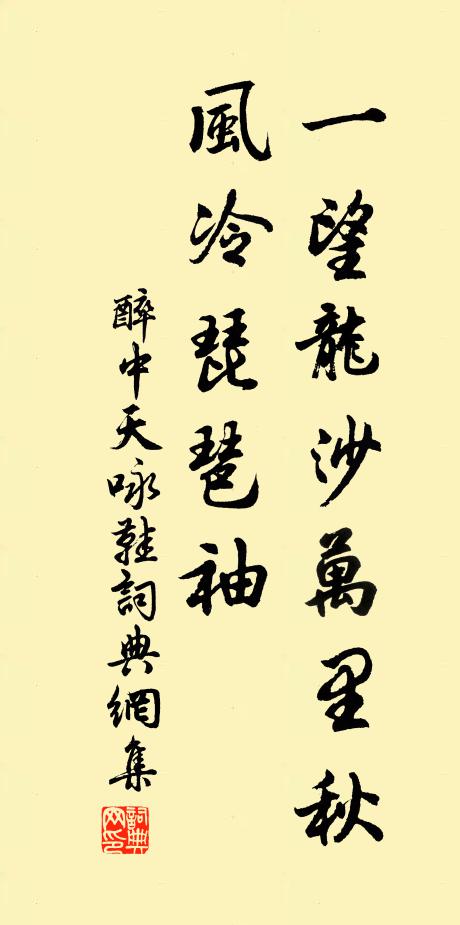 一望龍沙萬里秋
風冷琵琶袖
醉中天咏鞋詞典網集
詞典網印